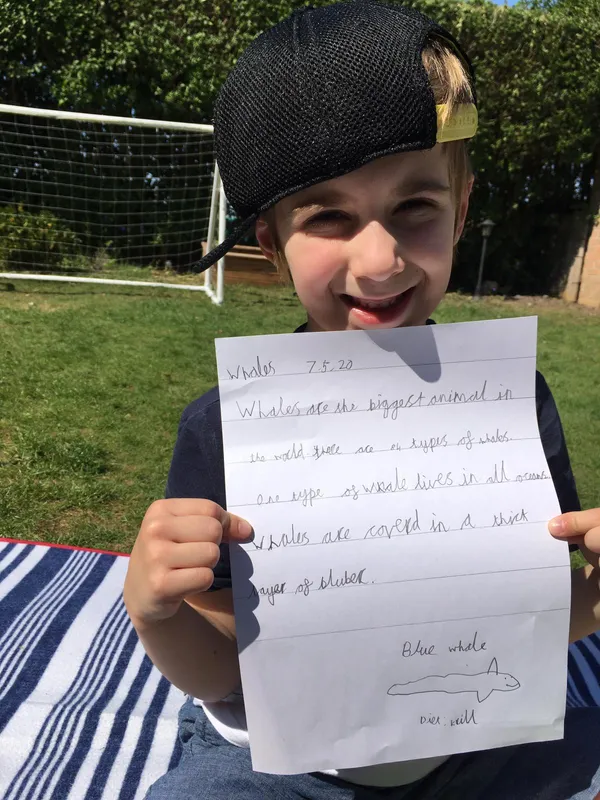 Whales 7.5.20
Whales are the biggest animal in
the world there are 84 types of whales.
one type of whale lives in all oceans.
Whales are coverd in a thick
layer of bluber.
Blue whale
Diet: krill